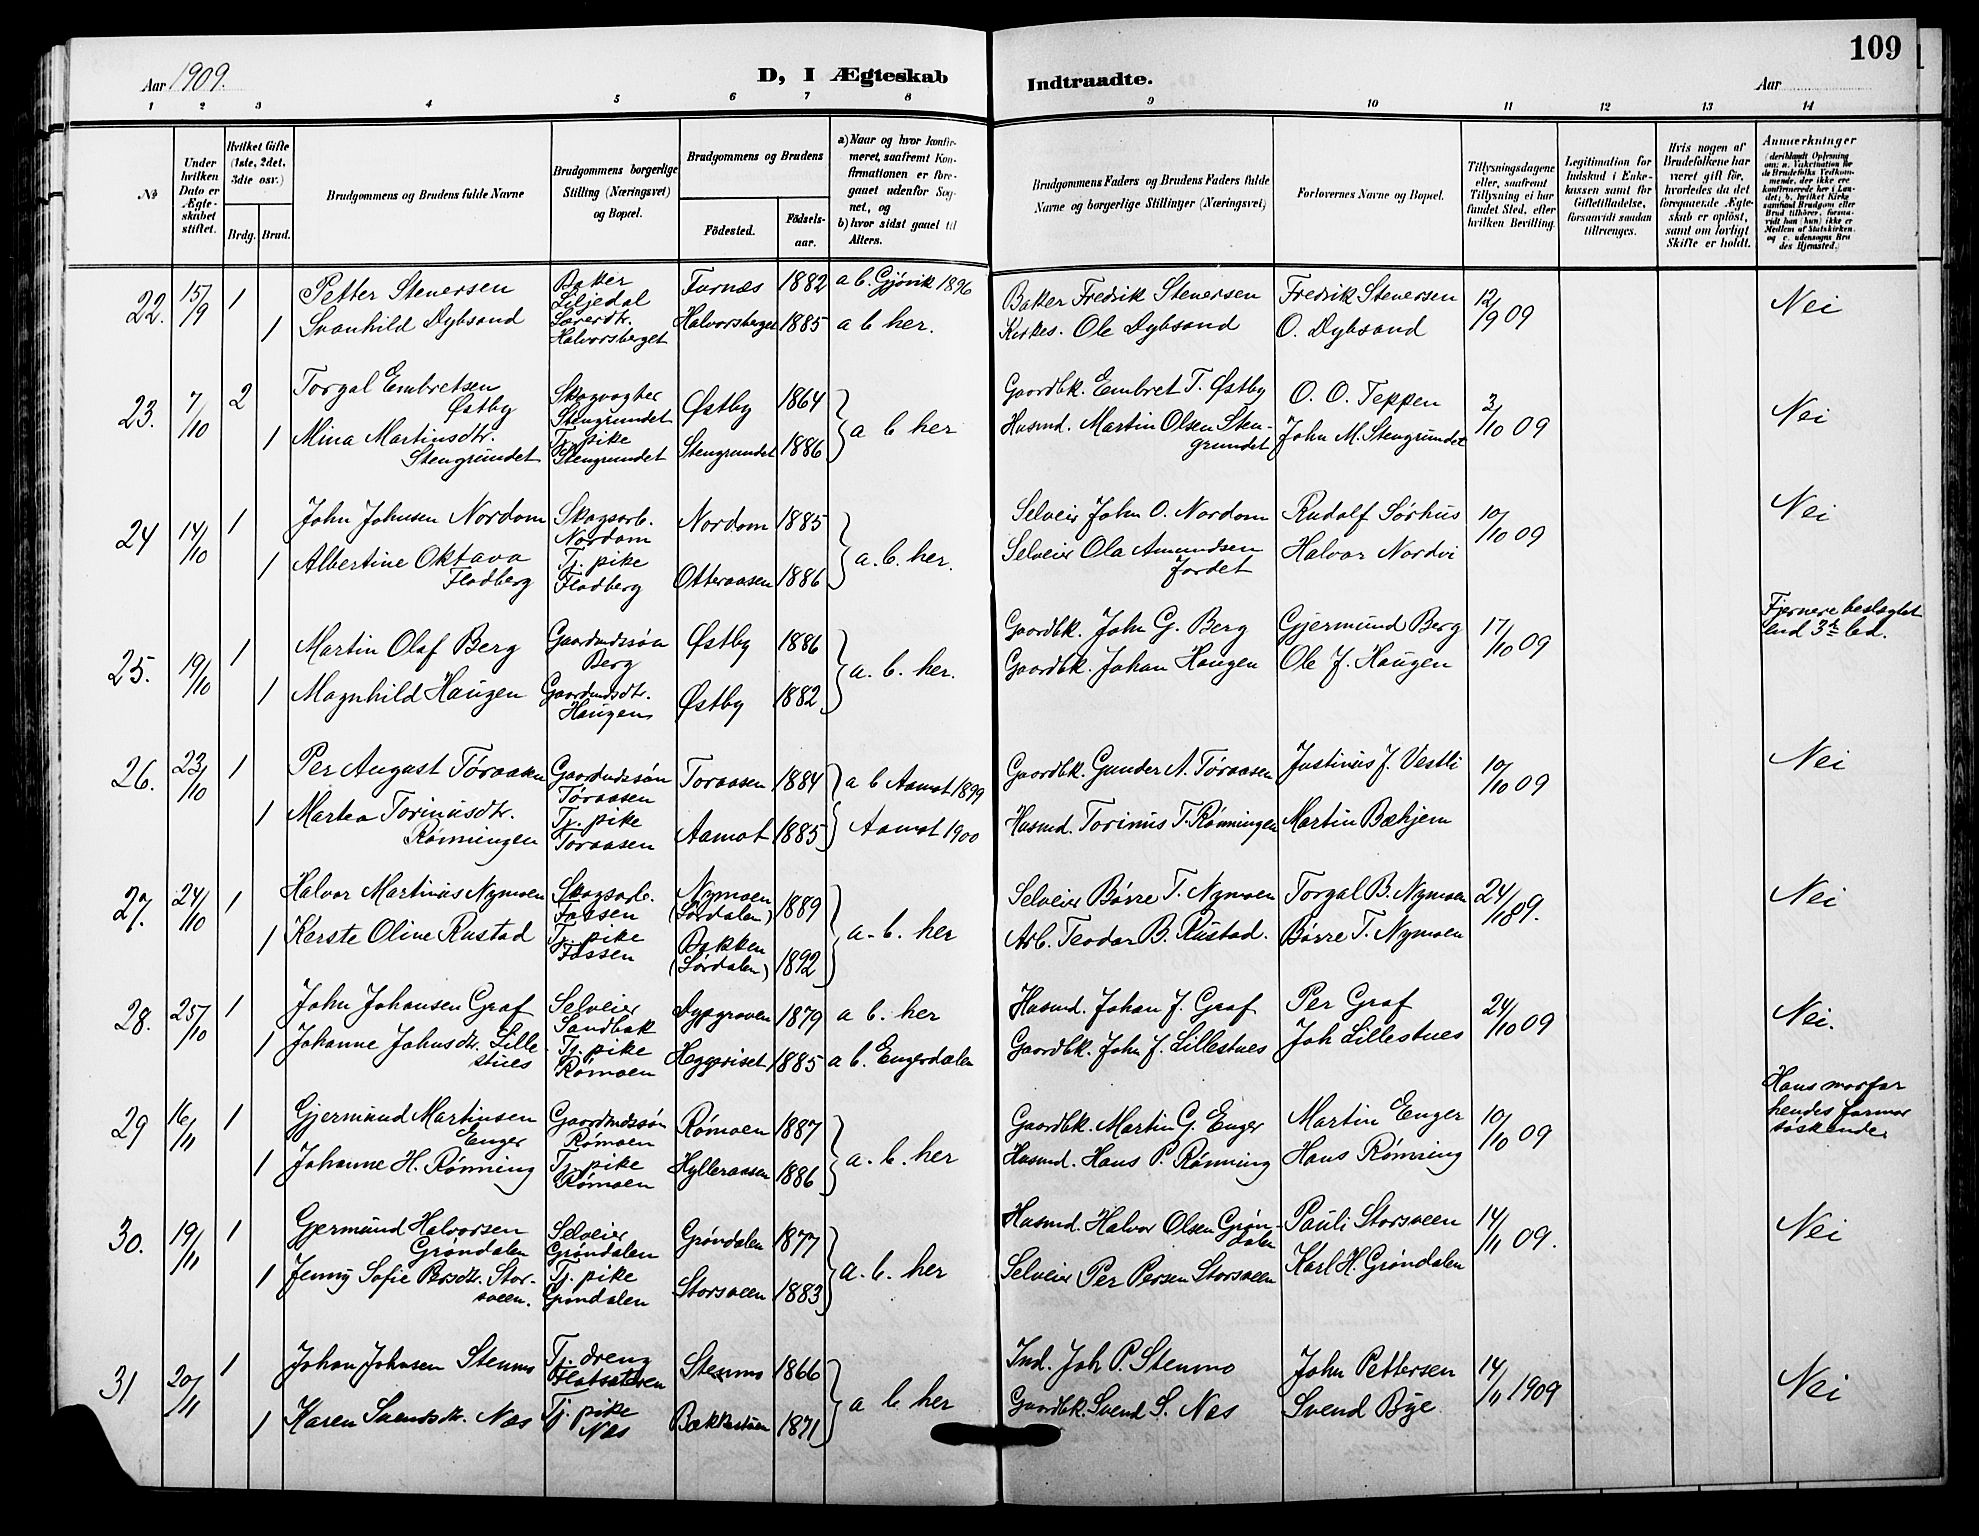 109
Aar 1909.
D, I Ægteskab Indtraadte.
Aar
1 2 3 4 5 6 7 8 9 10 11 12 13 14
№
Under hvilken Dato er Ægteskabet stiftet.
Hvilket Gifte (1ste, 2det, 3die osv.)
Brdg. Brud.
Brudgommens og Brudens fulde Navne
Brudgommens borgerlige Stilling (Næringsvei) og Bopæl.
Brudgommens og Brudens
Födested. Födselsaar.
a) Naar og hvor konfirmeret, saafremt Konfirmationen er foregaaet udenfor Sognet, og
b) hvor sidst gaaet til Alters.
Brudgommens Faders og Brudens Faders fulde Navne og borgerlige Stillinger (Næringsvei)
Forlovernes Navne og Bopæl.
Tillysningsdagene eller, saafremt Tillysning ei har fundet Sted, efter hvilken Bevilling.
Legitimation for Indskud i Enkekassen samt for Giftetilladelse, forsaavidt saadan tiltrænges.
Hvis nogen af Brudefolkene har været gift för, hvorledes da det foregaaende Ægteskab er oplöst, samt om lovligt Skifte er holdt.
Anmærkninger
22. 15/9 1 Petter Stenersen Baker Liljedal Furnæs 1882 a b. Gjøvik 1896 Baker Fredrik Stenersen Fredrik Stenersen 12/9 09 Nei
1 Svanhild Dybsand Lærerdtr. Halvorsberget Halvorsberget 1885 a b her. Kirkes. Ole Dybsand O. Dybsand
23. 7/10 2 Torgal Embretsen Østby Skogvogter Stengrundet Østby 1864 a b her Gaardbk. Embret T. Østby O. O. Teppen 3/10 09 Nei
1 Mina Martinsdtr. Stengrundet Tj. pike Stengrundet Stengrundet 1886 Husmd. Martin Olsen Stengrundet John M. Stengrundet
24 14/10 1 John Johnsen Nordom Skogsarb. Nordom Nordom 1885 a. b. her. Selveier John O. Nordom Rudolf Sørhus 10/10 09 Nei
1 Albertine Oktava Fladberg Tj. pike Fladberg Otteraasen 1886 Selveier Ola Amundsen Jordet Halvor Nordvi
25. 19/10 1 Martin Olaf Berg Gaardmdssøn Berg Østby 1886 a. b. her. Gaardbk. John G. Berg Gjermund Berg 17/10 09 Fjernere beslægtet end 3die led.
1 Magnhild Haugen Gaardmdsdtr. Haugen Østby 1882 Gaardbk. Johan Haugen Ole J. Haugen
26. 23/10 1 Per August Tøraasen Gaardmdssøn Tøraasen Toraasen 1884 a b Aamot 1899 Gaardbk. Gunder A. Tøraasen Justinus J. Vestli 10/10 09 Nei
1 Martea Torinusdtr. Rønningen Tj. pike Toraasen Aamot 1885 Aamot 1900 Husmd. Torinus T. Rønningen Martin Bækjem
27. 24/10 1 Halvor Martinus Nymoen Skogsarb. Faasen Nymoen (Sørdalen) 1889 a. b. her Selveier Børre T. Nymoen Torgal B. Nymoen 24/10 09. Nei
1 Kerste Oline Rustad Tj. pike Fossen Bakken (Sørdalen) 1892 Arb. Teodor B. Rustad. Børre T. Nymoen
28. 25/10 1 John Johansen Graf Selveier Sandbak Dypgraven 1879 a b. her Husmd. Johan J. Graf Per Graf 24/10 09 Nei.
1 Johanne Johnsdtr. Lillestues Tj. pike Rømoen Heggeriset 1885 a b. Engerdalen Gaardbk. John J. Lillestues Joh Lillestues
29 16/11 1 Gjermund Martinsen Enger Gaardmdssøn Rømoen Rømoen 1887 a. b. her Gaardbk. Martin G. Enger Martin Enger 10/10 09 Hans morfar hendes farmor søskende
1 Johanne H. Rønning Tj. pike Rømoen Hylleraasen 1886 Husmd. Hans P. Rønning Hans Rønning
30. 19/11 1 Gjermund Halvorsen Grøndalen Selveier Grøndalen Grøndalen 1877 a. b. her Husmd. Halvor Olsen Grøndalen Pauli Storsveen 14/11 09. Nei
1 Jenny Sofie Persdtr. Storsveen. Tj. pike Grøndalen Storsveen 1883 Selveier Per Persen Storsveen Karl H. Grøndalen
31 20/11 1 Johan Johnsen Stenmo Tj. dreng Flatsæteren Stenmo 1866 a b her Ind. Joh P. Stenmo John Pettersen 14/11 1909 Nei
1 Karen Svendsdtr. Næs Tj. pike Næs Bækkestuen 1871 Gaardbk. Svend S. Næs Svend Bye